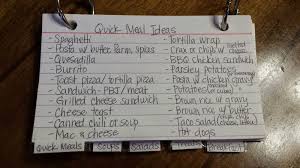 Quick Meal Ideas
- Spaghetti
- Pasta w/ butter, parm, spices
- Quesadilla
- Burrito
- Toast pizza/tortilla pizza
- Sandwich - PBJ/meat
- Grilled cheese sandwich
- Cheese toast
- Canned chili or soup
- Mac & cheese
- Tortilla wrap
- Crax or chips w/
- BBQ chicken sandwich
- Parsley potatoes
- potatoes w/ gravy
- Brown rice w/ gravy
- Brown rice w/ butter
- Taco salad (cheese, lettuce)
- Hot dogs
Quick Meals
Soups
Salads
Breakfast